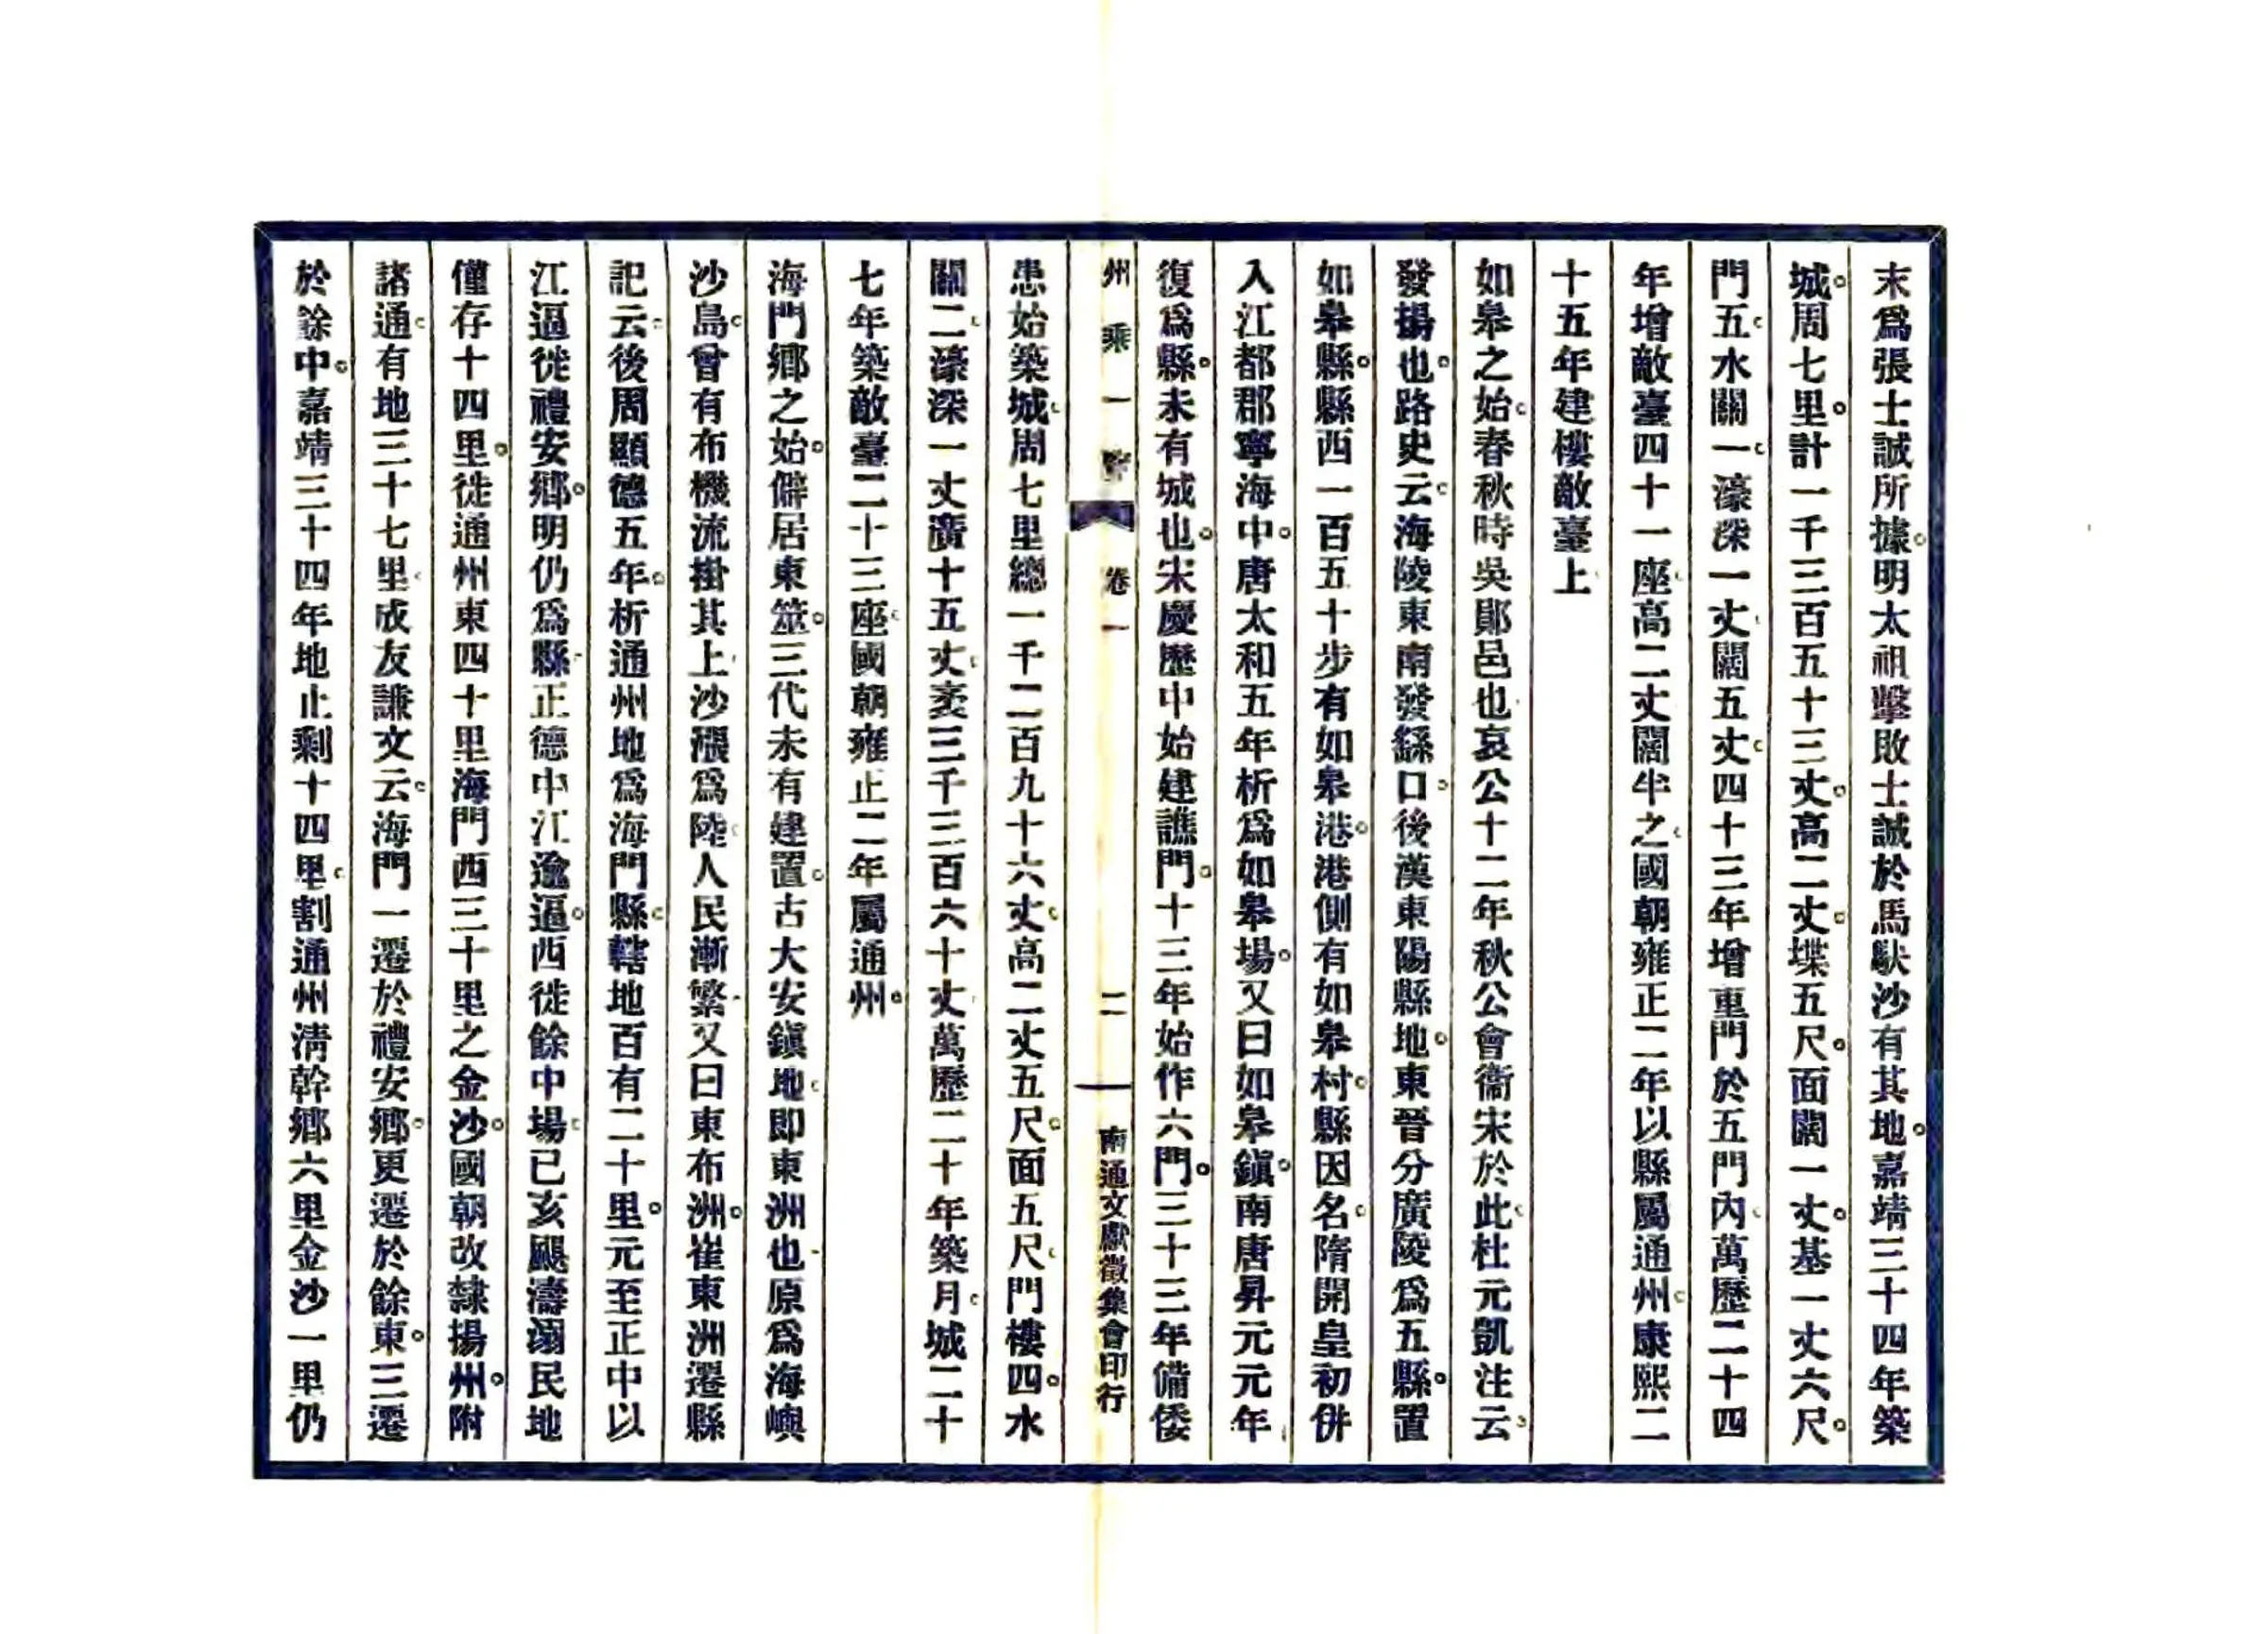 末爲張士誠所據。明太祖擊敗士誠於馬馱沙有其地。嘉靖三十四年築
城。周七里。計一千三百五十三丈。高二丈。堞五尺。面闊一丈。基一丈六尺。
門五。水關一。濠深一丈。闊五丈。四十三年增重門於五門內。萬歷二十四
年增敵臺四十一座。高二丈闊半之。國朝雍正二年以縣屬通州。康熙二
十五年建樓敵臺上。
如皋之始。春秋時吳鄖邑也。哀公十二年秋公會衞宋於此。杜元凱注云。
發揚也。路史云。海陵東南發繇口。後漢東陽縣地。東晉分廣陵爲五縣。置
如皋縣。縣西一百五十步有如皋港。港側有如皋村。縣因名。隋開皇初併
入江都郡寧海中。唐太和五年析爲如皋場。又曰如皋鎮。南唐昇元元年
復爲縣。未有城也。宋慶歷中始建譙門。十三年始作六門。三十三年備倭
州乘一 卷一 二 南通文獻徵集會印行
患始築城。周七里總一千二百九十六丈。高二丈五尺。面五尺。門樓四。水
關二。濠深一丈廣十五丈。袤三千三百六十丈。萬歷二十年築月。城二十
七年築敵臺二十三座。國朝雍正二年屬通州。
海門鄉之始。僻居東筮。三代未有建置。古大安鎮地。即東洲也。原爲海嶼
沙島。曾有布機流掛其上。沙漲爲陸。人民漸繁。又曰東布洲。崔東洲遷縣
記云。後周顯德五年。析通州地爲海門縣。轄地百有二十里。元至正中以
江逼徙禮安鄉。明仍爲縣。正德中江逾逼。西徙餘中場。已亥颶濤溺民地
僅存十四里。徙通州東四十里海門西三十里之金沙。國朝改隸揚州。附
諸通。有地三十七里。成友謙文云。海門一遷於禮安鄉。更遷於餘東。三遷
於餘中。嘉靖三十四年地止剩十四里。割通州清幹鄉六里金沙一里仍